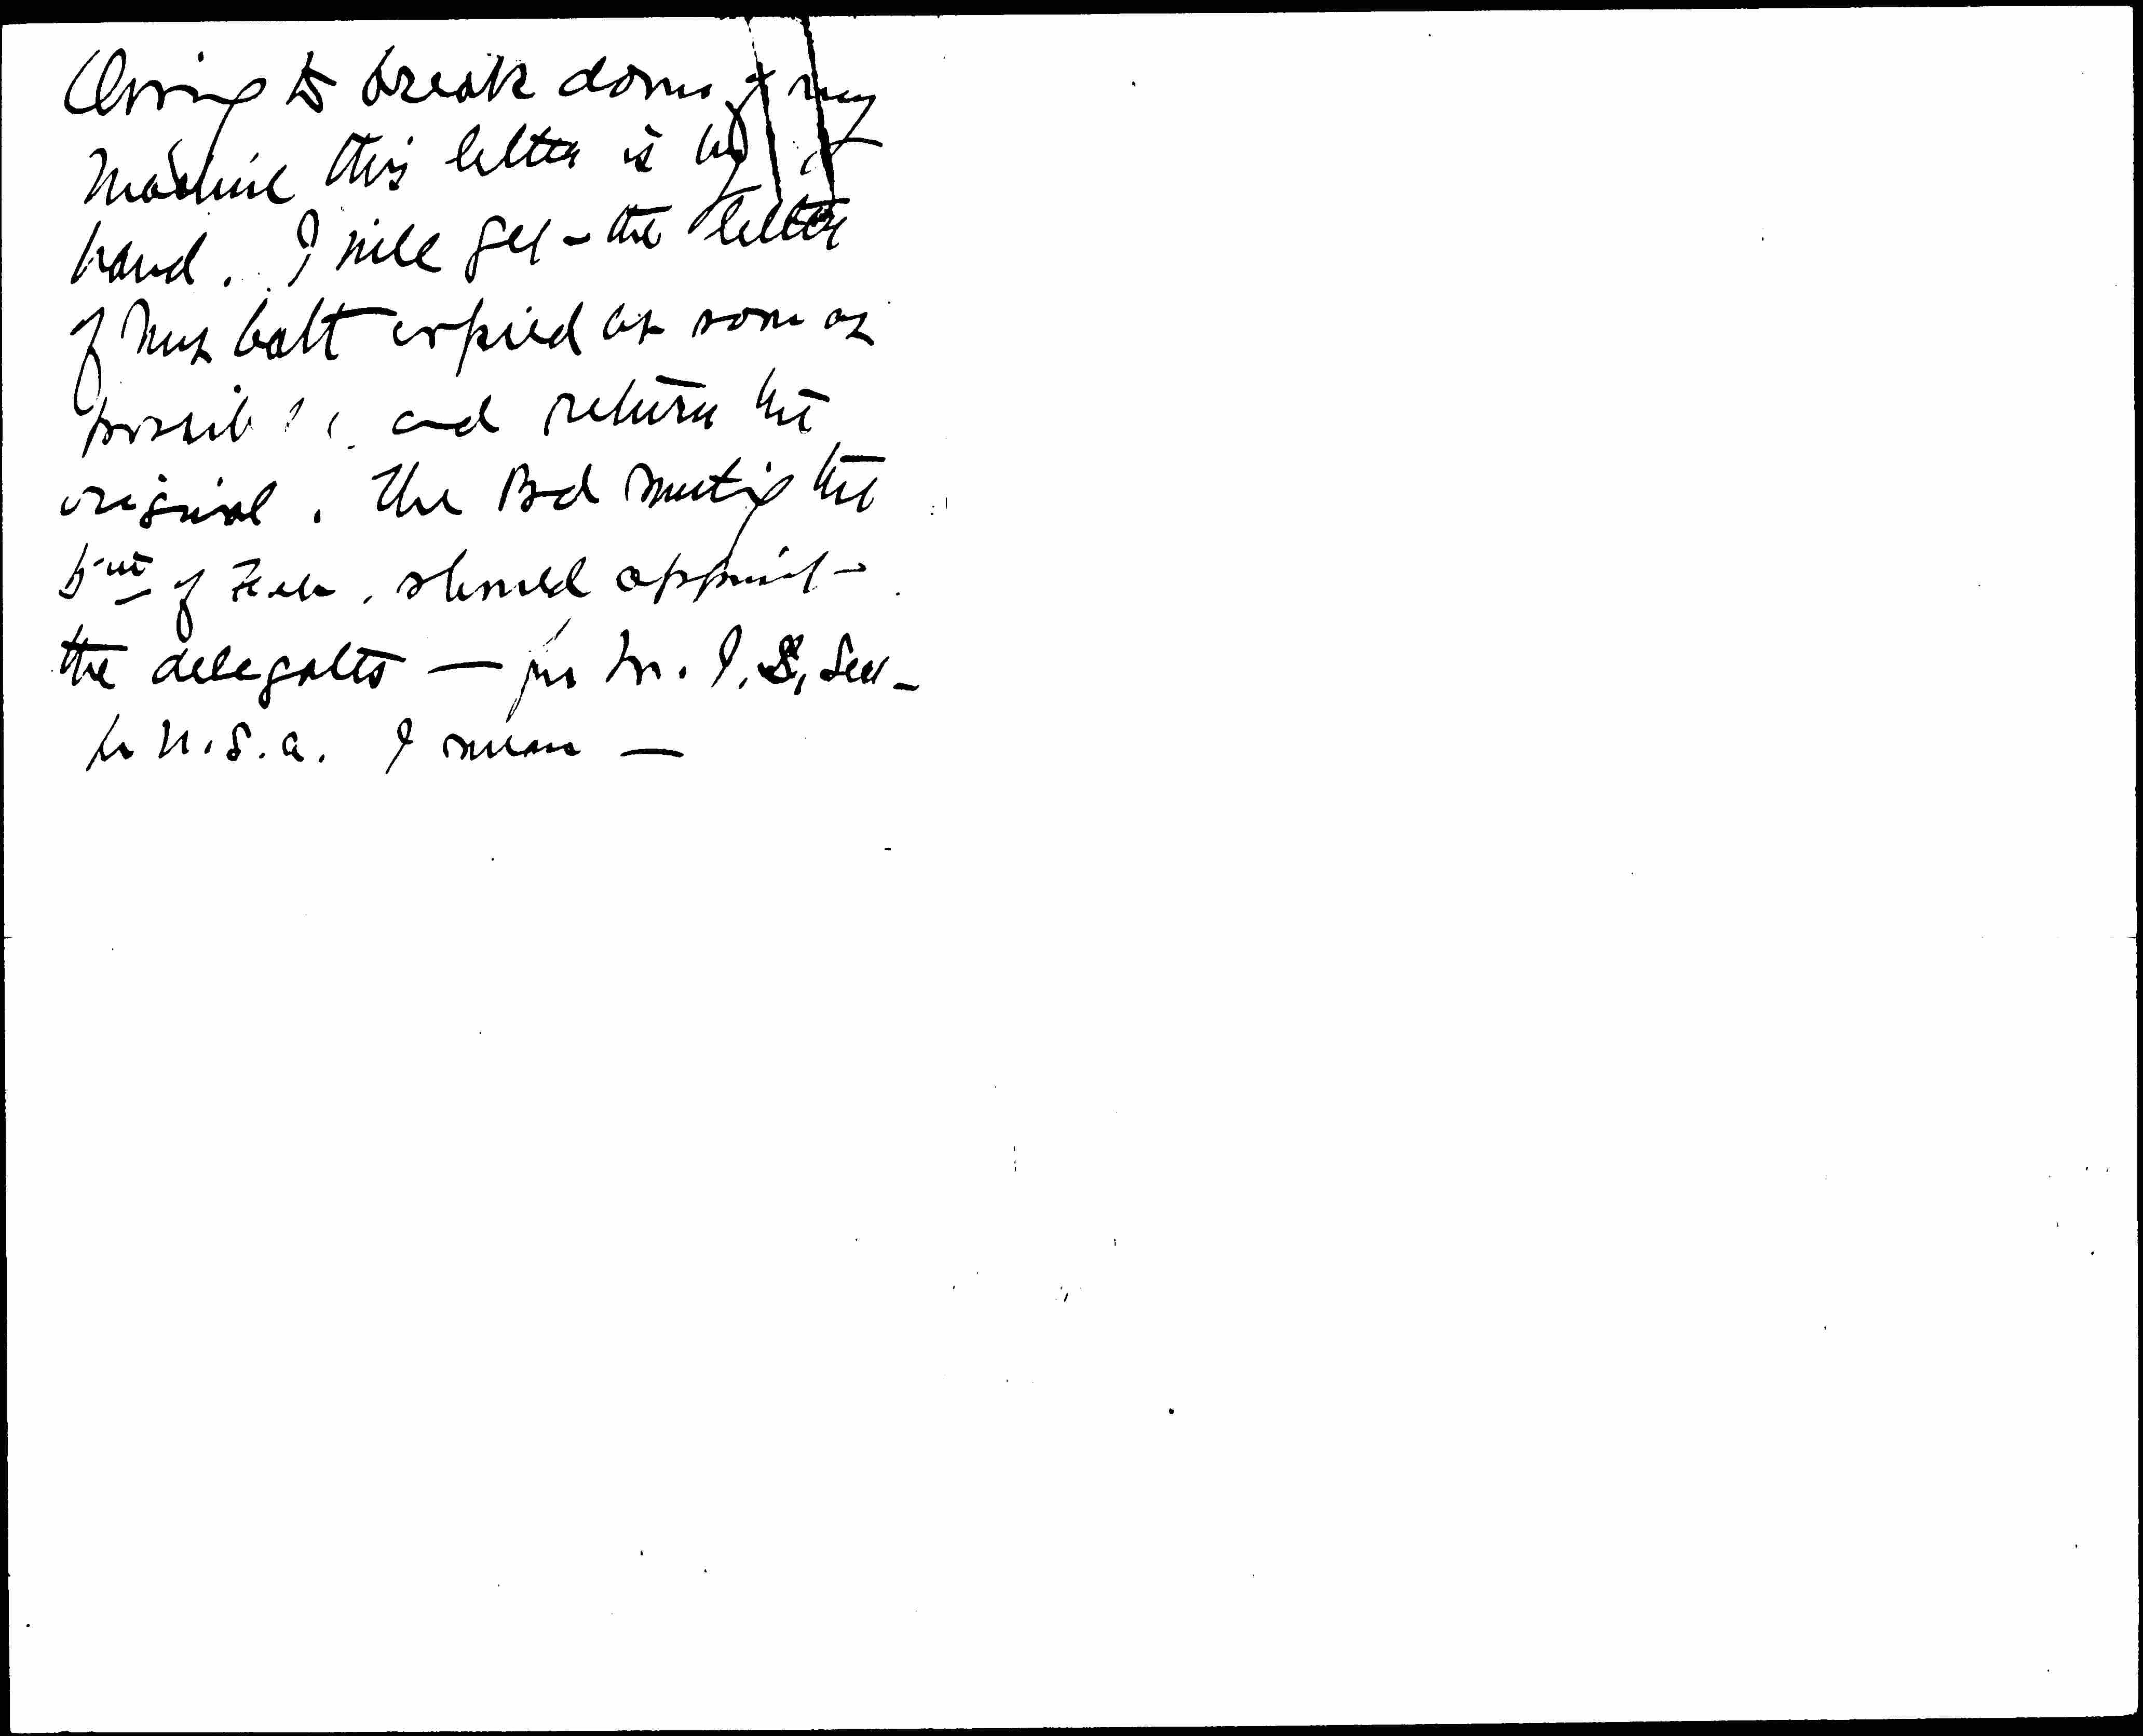 Owing to break down of my
Machine this letter is by
hand. I will get the letter
of Mrs balt copied as soon as
possible and return the
original. The Bd meeting the
5th of Feb. should appoint
the delegates — for
for U.S.A. I mean —